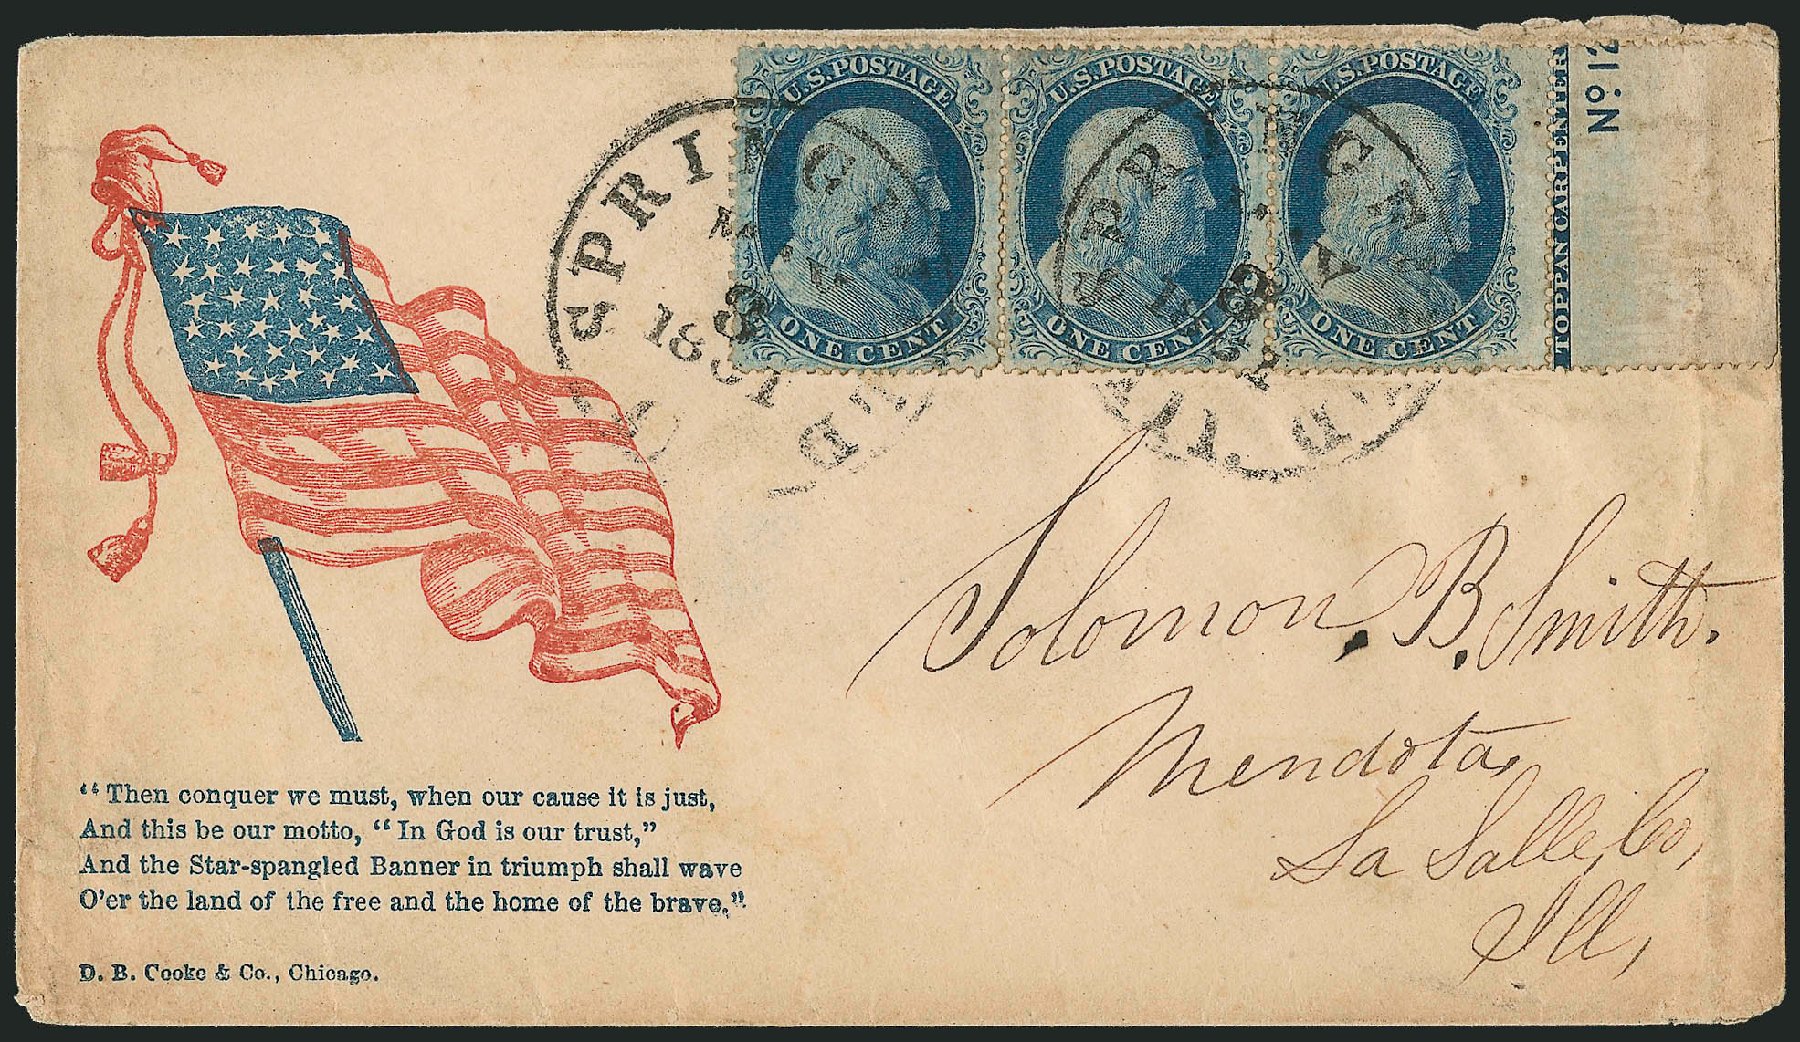 U.S. POSTAGE
ONE CENT
U.S. POSTAGE
ONE CENT
U.S. POSTAGE
ONE CENT
TOPPAN CARPENTER
No. 12
SPRINGFIELD
MAY
8
1861
SPRINGFIELD
MAY
8
1861
Solomon. B. Smith.
Mendota,
La Salle, Co,
Ill,
“Then conquer we must, when our cause it is just,
And this be our motto, “In God is our trust,”
And the Star-spangled Banner in triumph shall wave
O'er the land of the free and the home of the brave.”
D. B. Cooke & Co., Chicago.